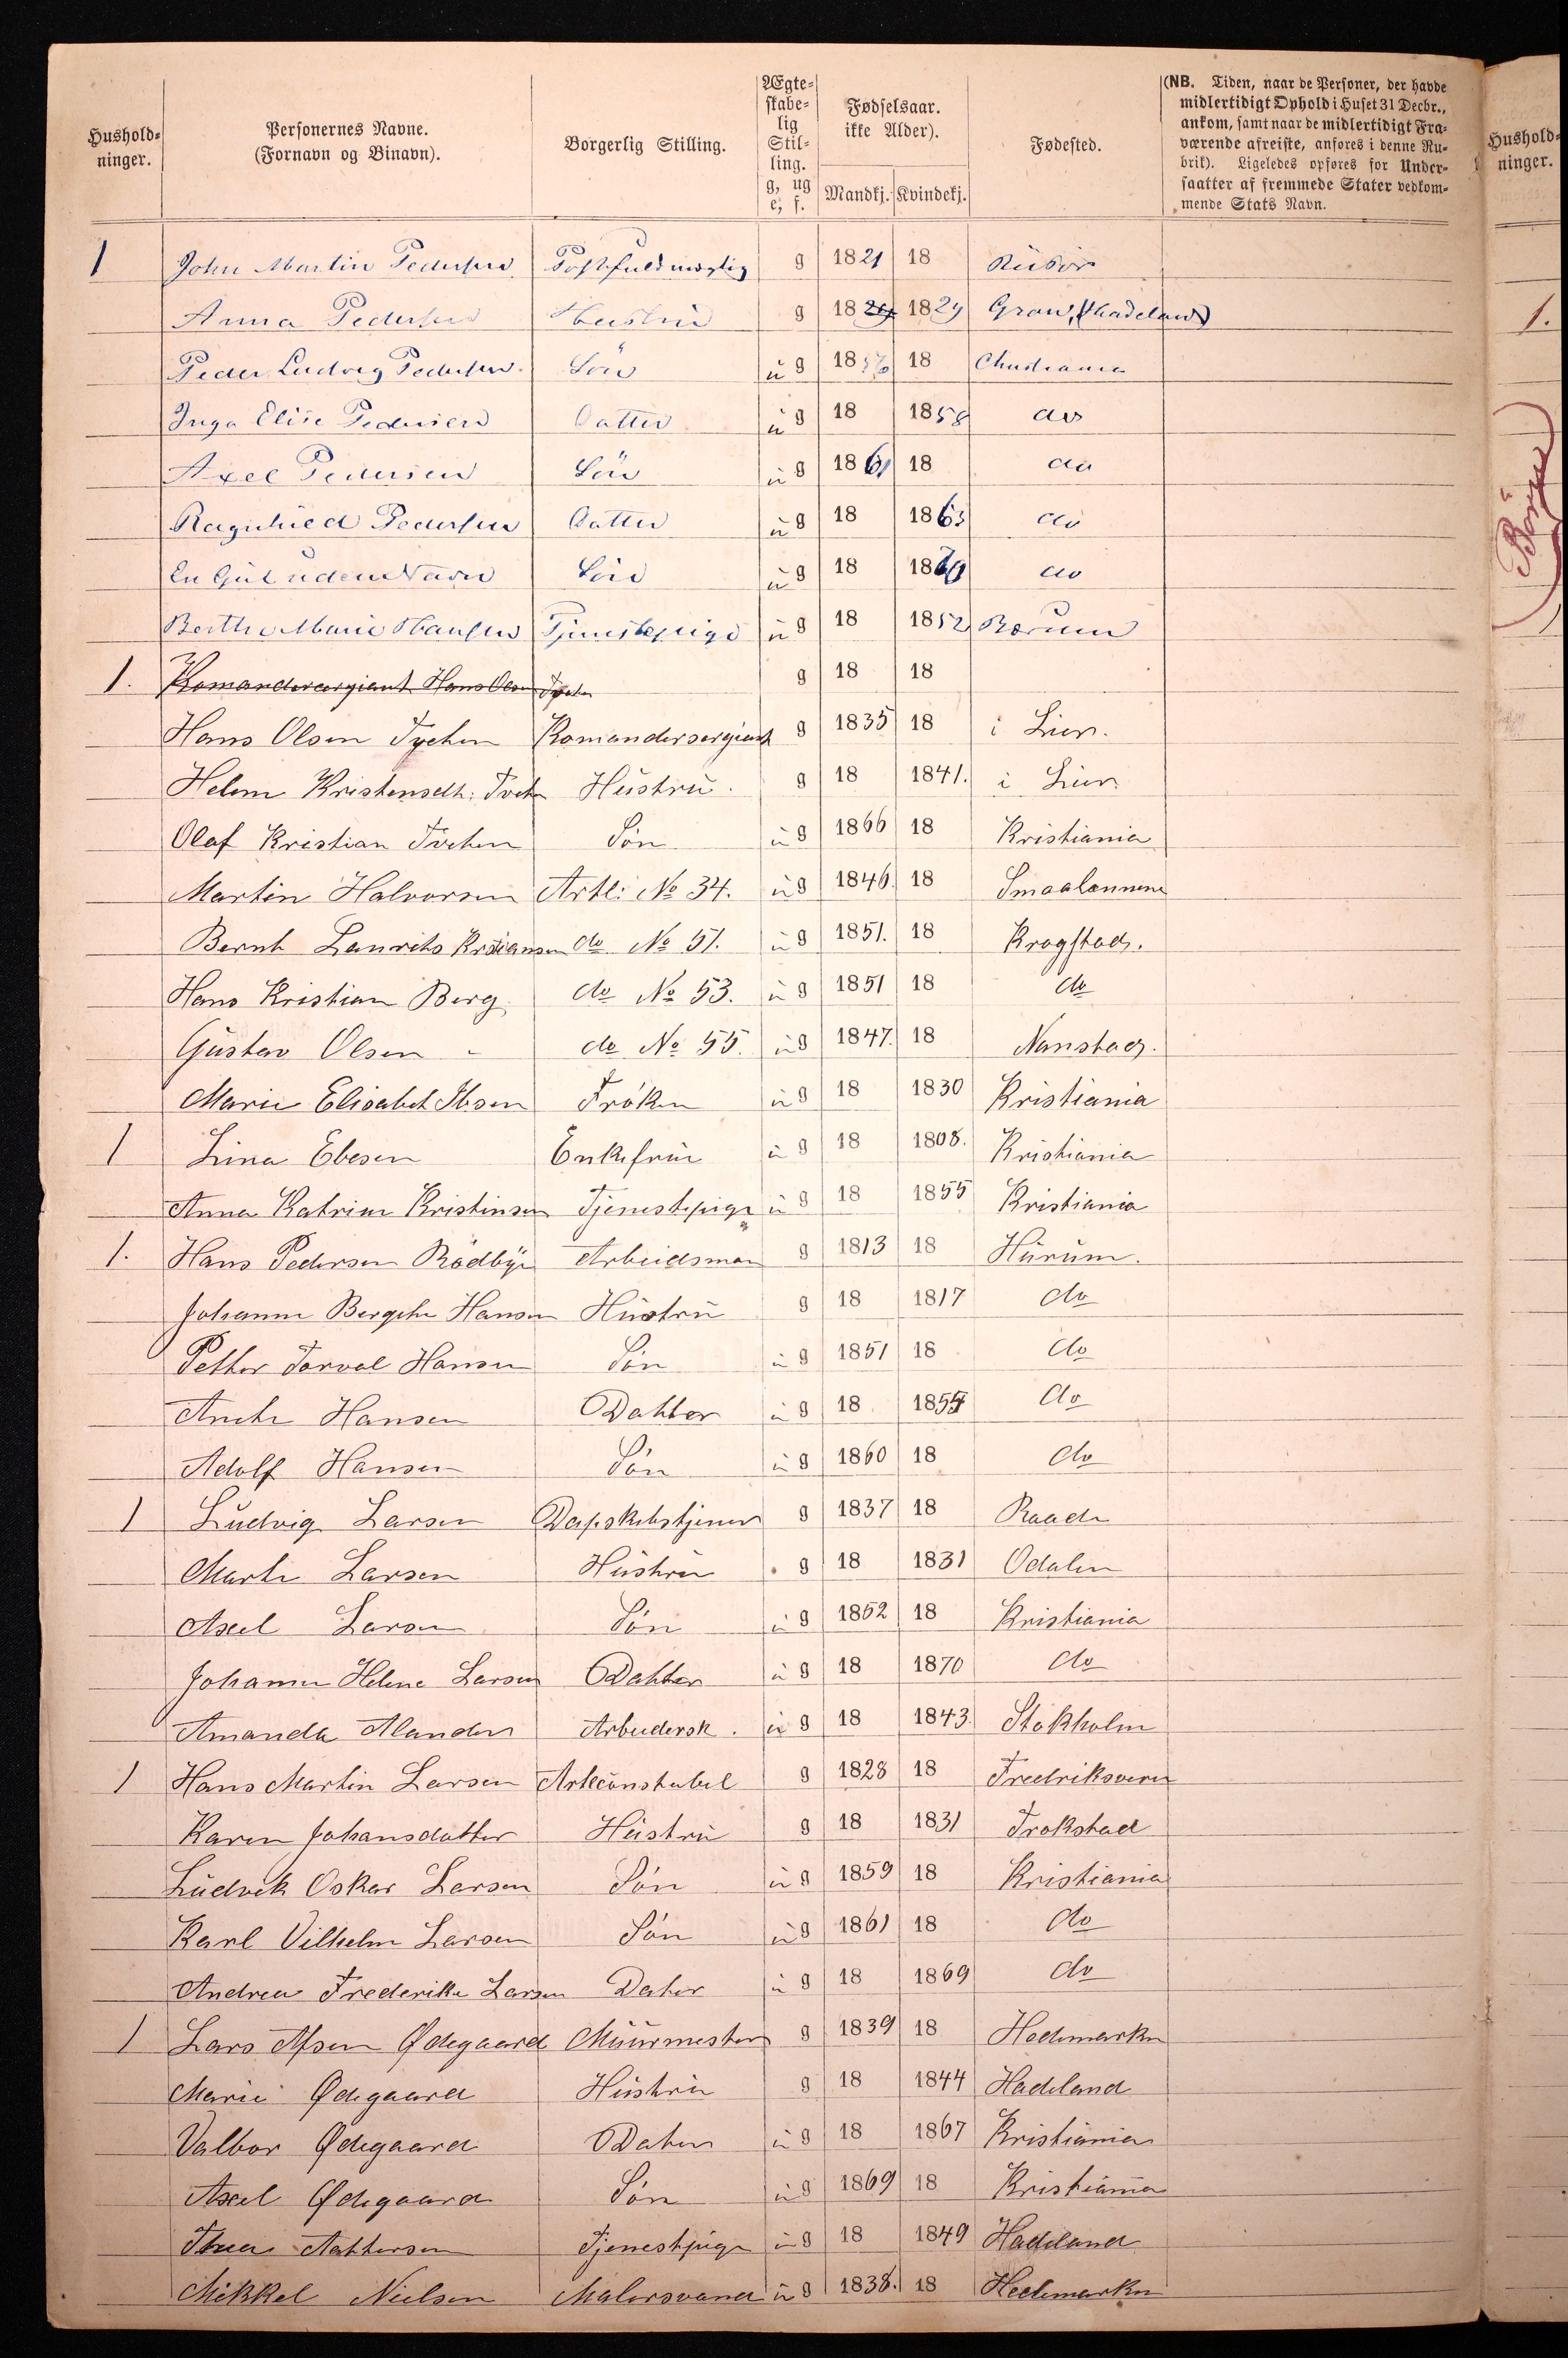 Hushold-
ninger.
Personernes Navne.
(Fornavn og Binavn).
Borgerlig Stilling.
Ægte-
skabe-
lig
Stil-
ling.
g, ug
e, f.
Fødselsaar.
ikke Alder).
Mandkj. Kvindekj.
Fødested.
(NB. Tiden, naar de Personer, der havde
midlertidigt Ophold i Huset 31 Decbr.,
ankom, samt naar de midlertidigt Fra-
værende afreiste, anføres i denne Ru-
brik). Ligeledes opføres for Under-
saatter af fremmede Stater vedkom-
mende Stats Navn.
Hushold-
ninger.
1 John Martin Pedersen Postfuldmægtig g 1821 18
Anna Pedersen Hustru g 18 1829 Gran, Hadeland
1.
Peder Ludvig Pedersen Søn ug 1856 18 Christiania
Inga Elise Pedersen Datter ug 18 1858 do
Axel Pedersen Søn ug 1861 18 do
Ragnhild Pedersen Datter ug 18 1863 do
En Gut uden Navn Søn ug 18 18 do
Berthe Marie Hansen Tjenestepige ug 18 1852 Bærum
1. Komandersergiant Hans Olsen g 18 18
Hans Olsen Tvehen Komandersergiant g 1835 18 i Lier.
Helene Kristensdt: Hustru. g 18 1841. i Lier.
Olaf Kristian Tvehen Søn ug 1866 18 Kristiania
Martin Halvorsen Artl: No 34. ug 1846. 18 Smaalennene
Bernt Laurits Kristiansen do No 51. ug 1851. 18 Krogstad.
Hans Kristian Berg do No 53. ug 1851 18 do
Gustav Olsen do No 55. ug 1847. 18
Marie Elisabet Ibsen Frøken ug 18 1830 Kristiania
1 Lina Ebesen Enkefru ug 18 1808. Kristiania
Anna Katrine Kristinsen Tjenestepige ug 18 1855 Kristiania
1. Hans Pedersen Rødbye Arbeidsman g 1813 18 Hurum.
Johanne Hansen Hustru g 18 1817 do
Petter Torval Hansen Søn ug 1851 18 do
Anete Hansen Dahter ug 18 1855 do
Adolf Hansen Søn ug 1860 18 do
1 Ludvig Larsen g 1837 18 Raade
Marte Larsen Hustru g 18 1831 Odalen
Axel Larsen Søn ug 1862 18 Kristiania
Johanne Helene Larsen Dahter ug 18 1870 do
Amanda Alander Arbeidersk. ug 18 1843. Stokholm
1 Hans Martin Larsen Artlconstabel g 1828 18 Fredriksvern
Karen Johansdatter Hustru g 18 1831 Trøkstad
Ludvik Oskar Larsen Søn ug 1859 18 Kristiania
Karl Vilhelm Larsen Søn ug 1861 18 do
Andrea Frederikke Larsen Dater ug 18 1869 do
1 Lars Ødegaard Muurmester g 1839 18 Hedemarken
Marie Ødegaard Hustru g 18 1844 Hadeland
Valbor Ødegaard Dater ug 18 1867 Kristiania
Axel Ødegaard Søn ug 1869 18 Kristiania
Tjenestpige ug 18 1849 Hadeland
Mikkel Nielsen Malersvend ug 1838. 18 Hedemarken